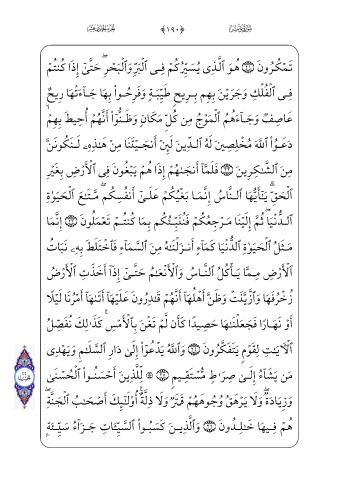 ﴿١٩٠﴾
تَمْكُرُونَ ۝ هُوَ ٱلَّذِى يُسَيِّرُكُمْ فِى ٱلْبَرِّ وَٱلْبَحْرِ ۖ حَتَّىٰٓ إِذَا كُنتُمْ
فِى ٱلْفُلْكِ وَجَرَيْنَ بِهِم بِرِيحٍ طَيِّبَةٍ وَفَرِحُوا۟ بِهَا جَآءَتْهَا رِيحٌ
عَاصِفٌ وَجَآءَهُمُ ٱلْمَوْجُ مِن كُلِّ مَكَانٍ وَظَنُّوٓا۟ أَنَّهُمْ أُحِيطَ بِهِمْ ۙ
دَعَوُا۟ ٱللَّهَ مُخْلِصِينَ لَهُ ٱلدِّينَ لَئِنْ أَنجَيْتَنَا مِنْ هَٰذِهِۦ لَنَكُونَنَّ
مِنَ ٱلشَّٰكِرِينَ ۝ فَلَمَّآ أَنجَىٰهُمْ إِذَا هُمْ يَبْغُونَ فِى ٱلْأَرْضِ بِغَيْرِ
ٱلْحَقِّ ۗ يَٰٓأَيُّهَا ٱلنَّاسُ إِنَّمَا بَغْيُكُمْ عَلَىٰٓ أَنفُسِكُم ۖ مَّتَٰعَ ٱلْحَيَوٰةِ
ٱلدُّنْيَا ۖ ثُمَّ إِلَيْنَا مَرْجِعُكُمْ فَنُنَبِّئُكُم بِمَا كُنتُمْ تَعْمَلُونَ ۝ إِنَّمَا
مَثَلُ ٱلْحَيَوٰةِ ٱلدُّنْيَا كَمَآءٍ أَنزَلْنَٰهُ مِنَ ٱلسَّمَآءِ فَٱخْتَلَطَ بِهِۦ نَبَاتُ
ٱلْأَرْضِ مِمَّا يَأْكُلُ ٱلنَّاسُ وَٱلْأَنْعَٰمُ حَتَّىٰٓ إِذَآ أَخَذَتِ ٱلْأَرْضُ
زُخْرُفَهَا وَٱزَّيَّنَتْ وَظَنَّ أَهْلُهَآ أَنَّهُمْ قَٰدِرُونَ عَلَيْهَآ أَتَىٰهَآ أَمْرُنَا لَيْلًا
أَوْ نَهَارًا فَجَعَلْنَٰهَا حَصِيدًا كَأَن لَّمْ تَغْنَ بِٱلْأَمْسِ ۚ كَذَٰلِكَ نُفَصِّلُ
ٱلْءَايَٰتِ لِقَوْمٍ يَتَفَكَّرُونَ ۝ وَٱللَّهُ يَدْعُوٓا۟ إِلَىٰ دَارِ ٱلسَّلَٰمِ وَيَهْدِى
مَن يَشَآءُ إِلَىٰ صِرَٰطٍ مُّسْتَقِيمٍ ۝ ۞ لِّلَّذِينَ أَحْسَنُوا۟ ٱلْحُسْنَىٰ
وَزِيَادَةٌ ۖ وَلَا يَرْهَقُ وُجُوهَهُمْ قَتَرٌ وَلَا ذِلَّةٌ ۚ أُو۟لَٰٓئِكَ أَصْحَٰبُ ٱلْجَنَّةِ ۖ
هُمْ فِيهَا خَٰلِدُونَ ۝ وَٱلَّذِينَ كَسَبُوا۟ ٱلسَّيِّـَٔاتِ جَزَآءُ سَيِّئَةٍۭ